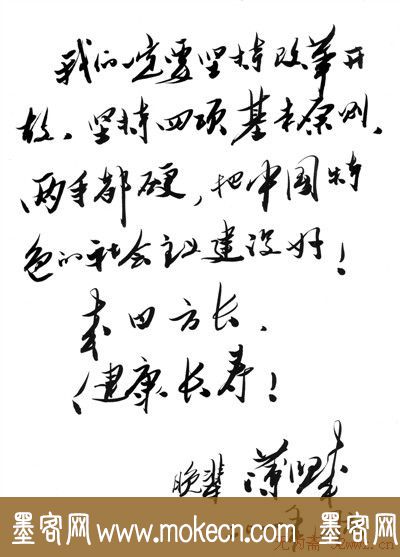 我们一定要坚持改革开
放、坚持四项基本原则、
两手都硬，把中国特
色的社会主义建设好！
来日方长、
健康长寿！
晚辈 薄熙来
墨客网 www.mokecn.com 墨客网